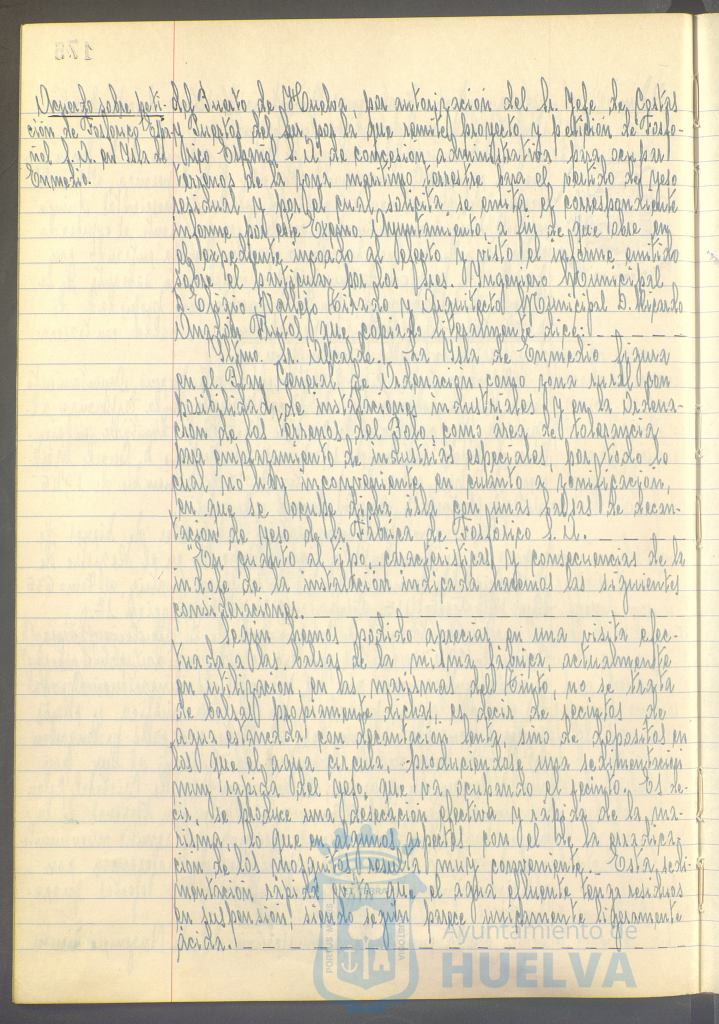 Acuerdo sobre peti-
ción de Fosfórico Espa-
ñol S.A. en Isla de
Enmedio.
del Puerto de Huelva, por autorización del Sr. Jefe de Costas
y Puertos del Sur, por la que remite proyecto y petición de Fosfó-
rico Español S.A. de concesión administrativa para ocupar
terrenos de la zona marítimo terrestre para el vertido de yeso
residual y por el cual solicita se emita el correspondiente
informe por este Excmo. Ayuntamiento, a fin de que obre en
el expediente incoado al efecto y visto el informe emitido
sobre el particular por los Sres. Ingeniero Municipal
D. Vallejo y Arquitecto Municipal D. Ricardo
Anadón Frutos, que copiado literalmente dice:
"Iltmo. Sr. Alcalde. La Isla de Enmedio figura
en el Plan General de Ordenación, como zona rural con
posibilidad de instalaciones industriales y en la Ordena-
ción de los terrenos del Polo, como área de tolerancia
para emplazamiento de industrias especiales, por todo lo
cual no hay inconveniente en cuanto a zonificación,
en que se ocupe dicha isla con unas balsas de decan-
tación de yeso de la Fábrica de Fosfórico S.A.
"En cuanto al tipo, características y consecuencias de la
índole de la instalación indicada hacemos las siguientes
consideraciones.
Según hemos podido apreciar en una visita efec-
tuada a las balsas de la misma fábrica, actualmente
en utilización, en las marismas del Tinto, no se trata
de balsas propiamente dichas, es decir de recintos de
agua estancada con decantación lenta, sino de depósitos en
los que el agua circula, produciéndose una sedimentación
muy rápida del yeso, que va ocupando el recinto. Es de-
cir, se produce una desecación efectiva y rápida de la ma-
risma, lo que en algunos aspectos, con el de la erradica-
ción de los mosquitos resulta muy conveniente. Esta sedi-
mentación rápida evita que el agua efluente tenga residuos
en suspensión, siendo según parece únicamente ligeramente
ácida.
Ayuntamiento de
HUELVA